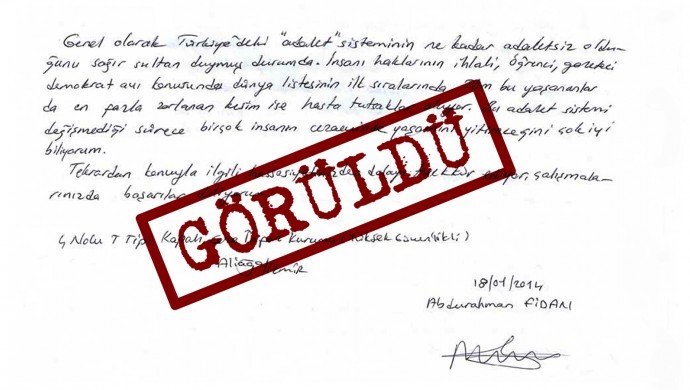 Genel olarak Türkiye'deki "adalet" sisteminin ne kadar adaletsiz oldu-
ğunu sağır sultan duymuş durumda. İnsanı haklarının ihlali, öğrenci, gazeteci
demokrat avı konusunda dünya listesinin ilk sıralarında. Tüm bu yaşananlar
da en fazla zorlanan kesim ise hasta tutsaklar oluyor. Bu adalet sistemi
değişmediği sürece birçok insanın cezaevinde yaşamını yitireceğini çok iyi
biliyorum.
Tekrardan konuyla ilgili dolayı teşekkür ediyor, çalışmala-
rınızda başarılar diliyorum.
GÖRÜLDÜ
4 Nolu T Tipi Kapalı Kurumu (Yüksek Güvenlikli)
Aliağa İzmir
18/01/2014
Abdurahman FİDAN